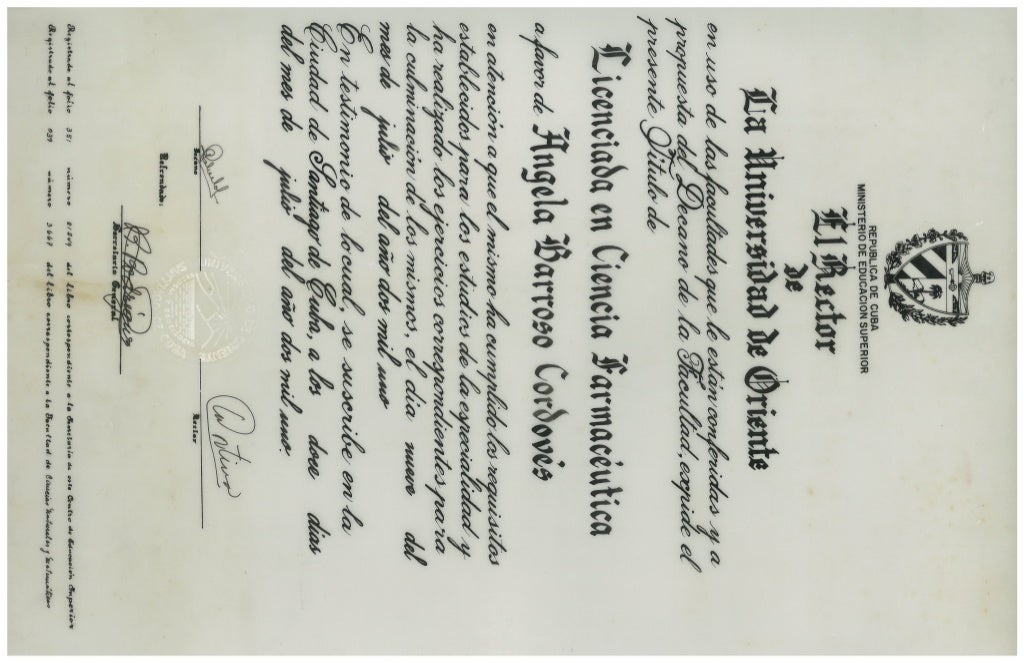 REPUBLICA DE CUBA
MINISTERIO DE EDUCACION SUPERIOR
El Rector
de
La Universidad de Oriente
en uso de las facultades que le están conferidas y a
propuesta del Decano de la Facultad, expide el
presente Título de
Licenciada en Ciencia Farmacéutica
a favor de Angela Barroso Cordovés
en atención a que el mismo ha cumplido los requisitos
establecidos para los estudios de la especialidad y
ha realizado los ejercicios correspondientes para
la culminación de los mismos, el día nueve del
mes de julio del año dos mil uno
En testimonio de lo cual, se suscribe en la
Ciudad de Santiago de Cuba, a los doce días
del mes de julio del año dos mil uno.
Decano Rector
Refrendado:
Secretario General
Registrado al folio 381 número del libro correspondiente a la Secretaría de este Centro de Educación Superior
Registrado al folio 039 número del libro correspondiente a la Facultad de Ciencias Naturales y Matemáticas